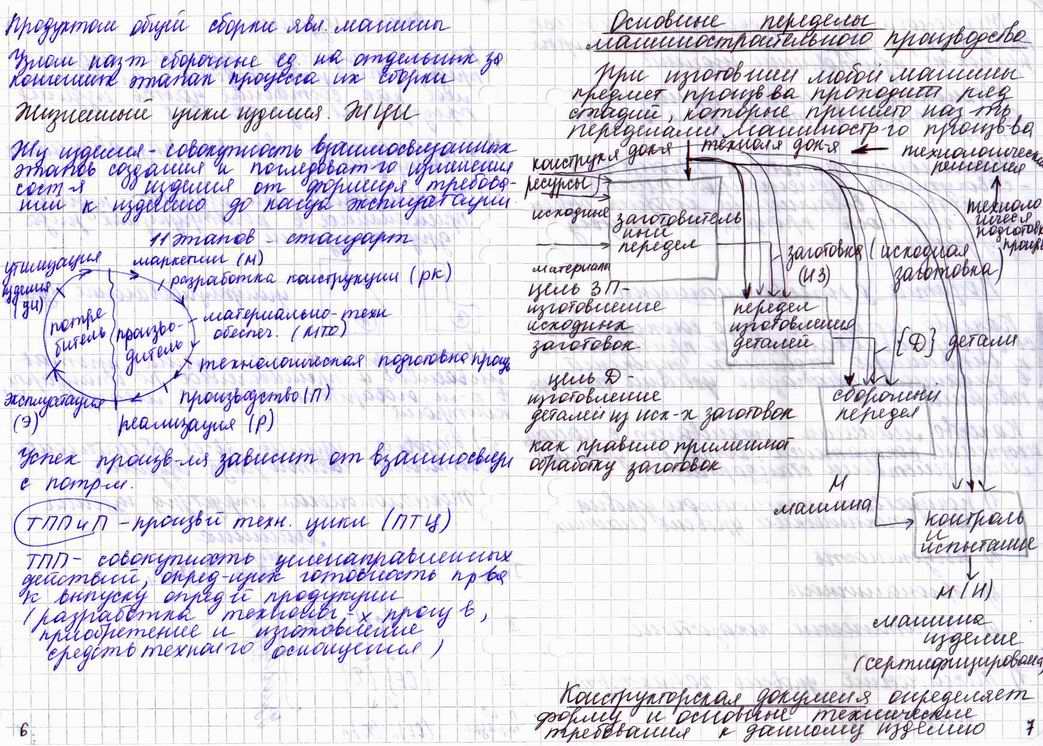 Продуктом общей сборки явл. машины
Узлом назт сборочные ед. на отдельных за
конченных этапах процесса их сборки
Жизненный цикл изделия. ЖЦИ
ЖЦ изделия - совокупность взаимосвязанных
этапов создания и последоват-го изменения
сост-я изделия от формиря требова-
ний к изделию до конца эксплуатации
11 этапов - стандарт
утилизация
изделия
(УИ)
маркетинг (М)
разработка конструкции (РК)
материально-техн
обеспеч. (МТО)
технологическая подготовка произ
производство (П)
реализация (Р)
эксплуатация
(Э)
потре
битель
произво-
дитель
Успех произв-ля зависит от взаимосвязи
с потр-м.
ТПП и П - произвй техн. цикл (ПТЦ)
ТПП - совокупность целенаправленных
действий, опред-щих готовность пр-ва
к выпуску опред-й продукции
(разработка технолог-х проц-в,
приобретение и изготовление
средств технол-го оснащения)
6
Основные переделы
машиностроительного производства
При изготовнии любой машины
предмет произ-ва проходит ряд
стадий, которые принято наз-ть
переделами машиностр-го произв-ва
конструкя докя
техноля докя
технологическия
решения
техноло
гическя
подготовка
произв
ресурсы
исходные
материалы
заготовитель
ный
передел
заготовка (исходная
(ИЗ) заготовка)
цель ЗП-
изготовление
исходных
заготовок
передел
изготовления
деталей
{Д} детали
цель Д-
изготовление
деталей из исх-х заготовок
как правило применяют
обработку заготовок
сборочны
передел
М
машина
контроль
и
испытание
М (И)
машина
изделие
(сертифицирована)
Конструкторская докумения определяет
форму и основные технические
требования к данному изделию
7